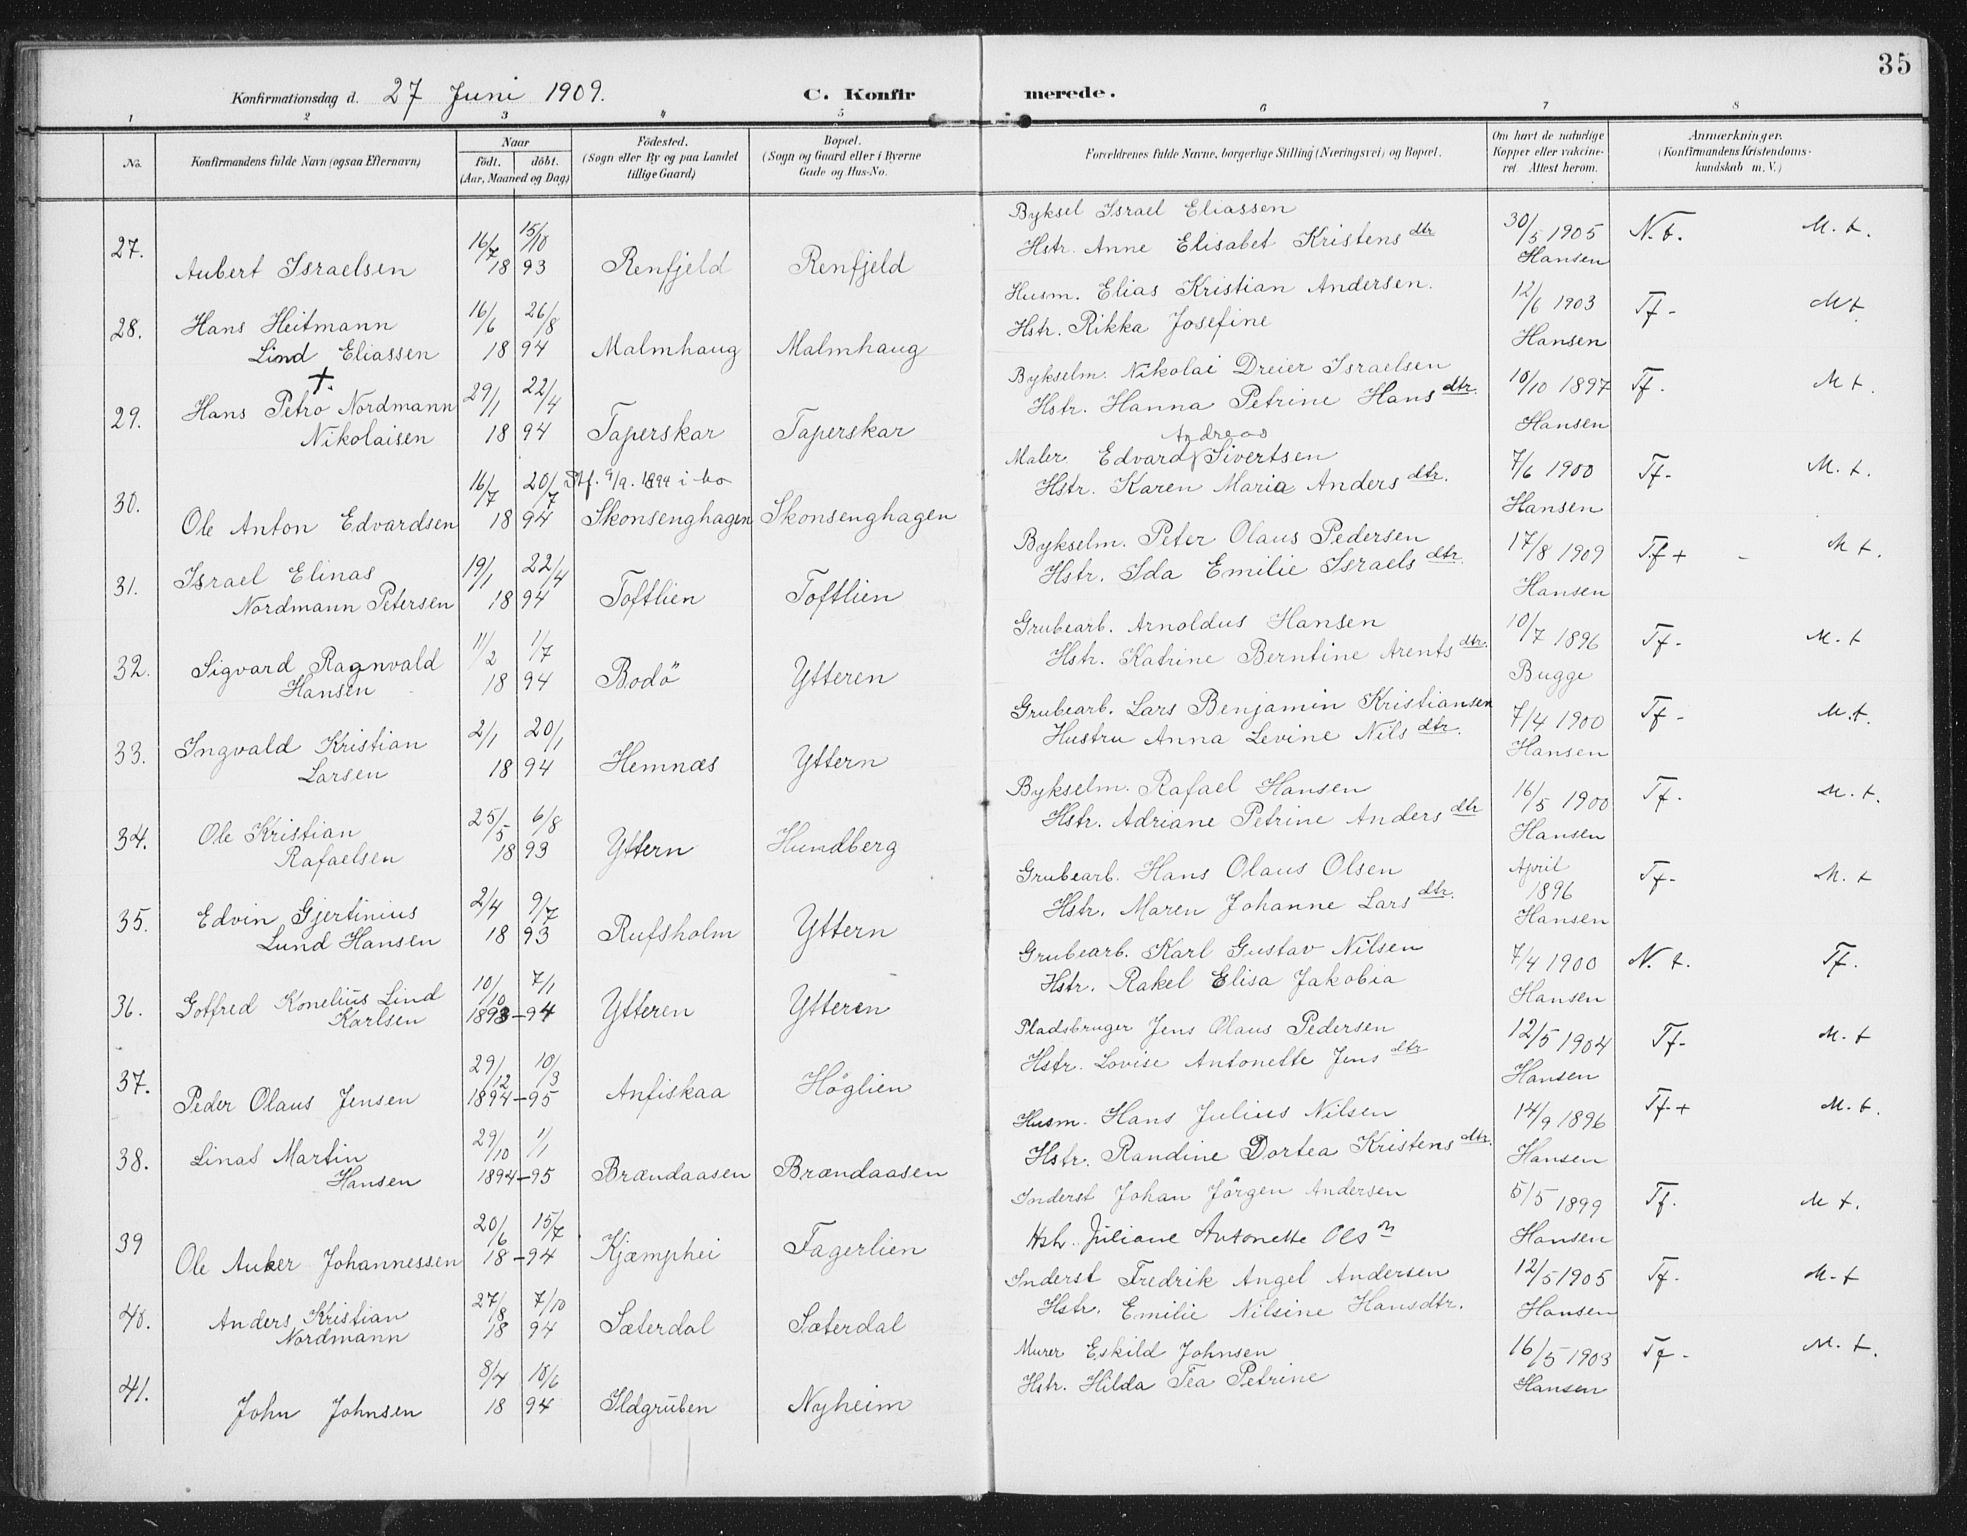 35
Konfirmationsdag d. 27 Juni 1909. C. Konfirmerede.
1 2 3 4 5 6 7 8
No. Konfirmandens fulde Navn (ogsaa Efternavn) Naar födt. döbt. (Aar, Maaned og Dag) Födested. (Sogn eller By og paa Landet tillige Gaard) Bopæl. (Sogn og Gaard eller i Byerne Gade og Hus-No. Forældrenes fulde Navne, borgerlige Stilling (Næringsvei) og Bopæl. Om havt de naturlige Kopper eller vakcineret. Attest herom. Anmærkninger. (Konfirmandens Kristendomskundskab m. V.)
27. Aubert Israelsen 16/7 15/10 1893 Renfjeld Renfjeld
Byksel Israel Eliassen
Hstr. Anne Elisabet Kristens dtr
30/5 1905 Hansen N.t. M.t.
28. Hans Heitmann
Lind Eliassen 16/6 26/8 1894 Malmhaug Malmhaug
Husm. Elias Kristian Andersen.
Hstr. Rikka Josefine
12/6 1903 Hansen Tf- Mt
+
29. Hans Petro Nordmann
Nikolaisen 29/1 22/4 1894 Taperskar Taperskar
Bykselm. Nikolai Dreier Israelsen
Hstr. Hanna Petrine Hans dtr.
10/10 1897 Hansen Tf. Mt.
30. Ole Anton Edvardsen 16/7 20/7 1894 Stf. 9/9. 1894 i bo Skonsenghagen Skonsenghagen
Andreas
Maler Edvard Sivertsen
Hstr. Karen Maria Anders dtr.
7/6 1900 Hansen Tf- M.t.
31. Israel Elinas
Nordmann Petersen 19/1 22/4 1894 Toftlien Toftlien
Bykselm. Peter Olaus Pedersen
Hstr. Ida Emilie Israels dtr.
17/8 1909 Hansen Tf+ - Mt.
32. Sigvard Ragnvald
Hansen 11/2 1/7 1894 Bodö Ytteren
Grubearb. Arnoldus Hansen
Hstr. Katrine Berntine Arents dtr.
10/7 1896 Bugge Tf- M.t
33. Ingvald Kristian
Larsen 2/1 20/1 1894 Hemnæs Yttern
Grubearb. Lars Benjamin Kristiansen
Hustru Anna Levine Nils dtr.
7/4 1900 Hansen Tf- M.t.
34. Ole Kristian
Rafaelsen 25/5 6/8 1893 Yttern Hundberg
Bykselm. Rafael Hansen
Hstr. Adriane Petrine Anders dtr
16/5 1900 Hansen Tf. M.t.
35. Edvin Gjertinius
Lund Hansen 2/4 9/7 1893 Rufsholm Yttern
Grubearb. Hans Olaus Olsen
Hstr. Maren Johanne Lars dtr.
April 1896 Hansen Tf- M.t
36. Gotfred Konelius Lind
Karlsen 10/10 7/1 1893-94 Ytteren Ytteren
Grubearb. Karl Gustav Nilsen
Hstr. Rakel Elisa Jakobia
7/4 1900 Hansen N.t. Tf.
37. Peder Olaus Jensen 29/12 10/3 1894-95 Anfiskaa Höglien
Pladsbruger Jens Olaus Pedersen
Hstr. Lovise Antonette Jens dtr
12/5 1904 Hansen Tf- M.t
38. Linas Martin
Hansen 29/10 1/1 1894-95 Brændaasen Brændaasen
Husm. Hans Julius Nilsen
Hstr. Randine Dortea Kristens dtr.
14/9 1896 Hansen Tf+ M.t.
39 Ole Anker Johannessen 20/6 15/7 18-94 Kjæmphei Fagerlien
Inderst Johan Jörgen Andersen
Hstr. Juliane Antonette Ols n
5/5 1899 Hansen Tf. Mt.
40. Anders Kristian
Nordmann 27/8 7/10 1894 Sæterdal Sæterdal
Inderst Fredrik Angel Andersen
Hstr. Emilie Nilsine Hansdtr.
12/5 1905 Hansen Tf- M.t
41. John Johnsen 8/4 10/6 1894 Ildgruben Nyheim
Murer Eskild Johnsen
Hstr. Hilda Tea Petrine
16/5 1903 Hansen Tf- M.t.